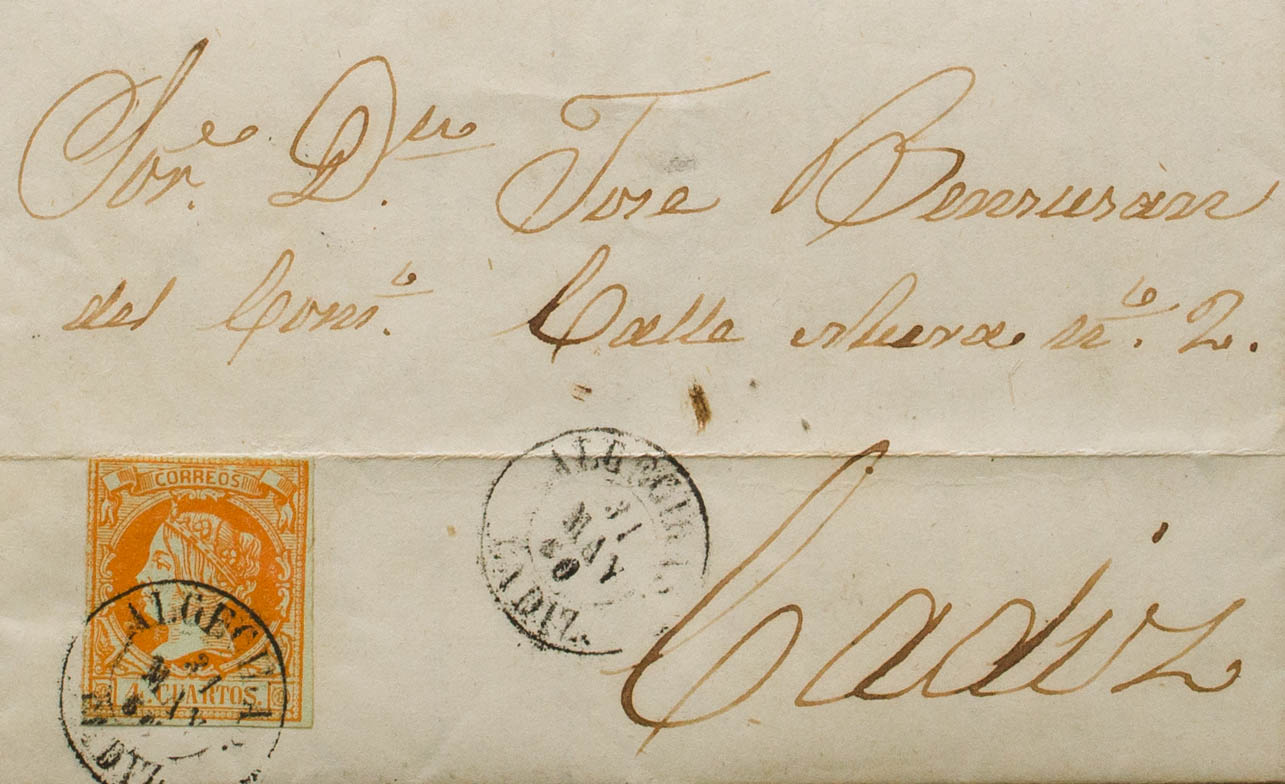 Sor.e D.n Jose Bensusan
del Com.o Calle Nueva n.o 2.
Cadiz
CORREOS
4 CUARTOS
ALGECIRAS
31
MAY
60
CADIZ
ALGECIRAS
31
MAY
CADIZ